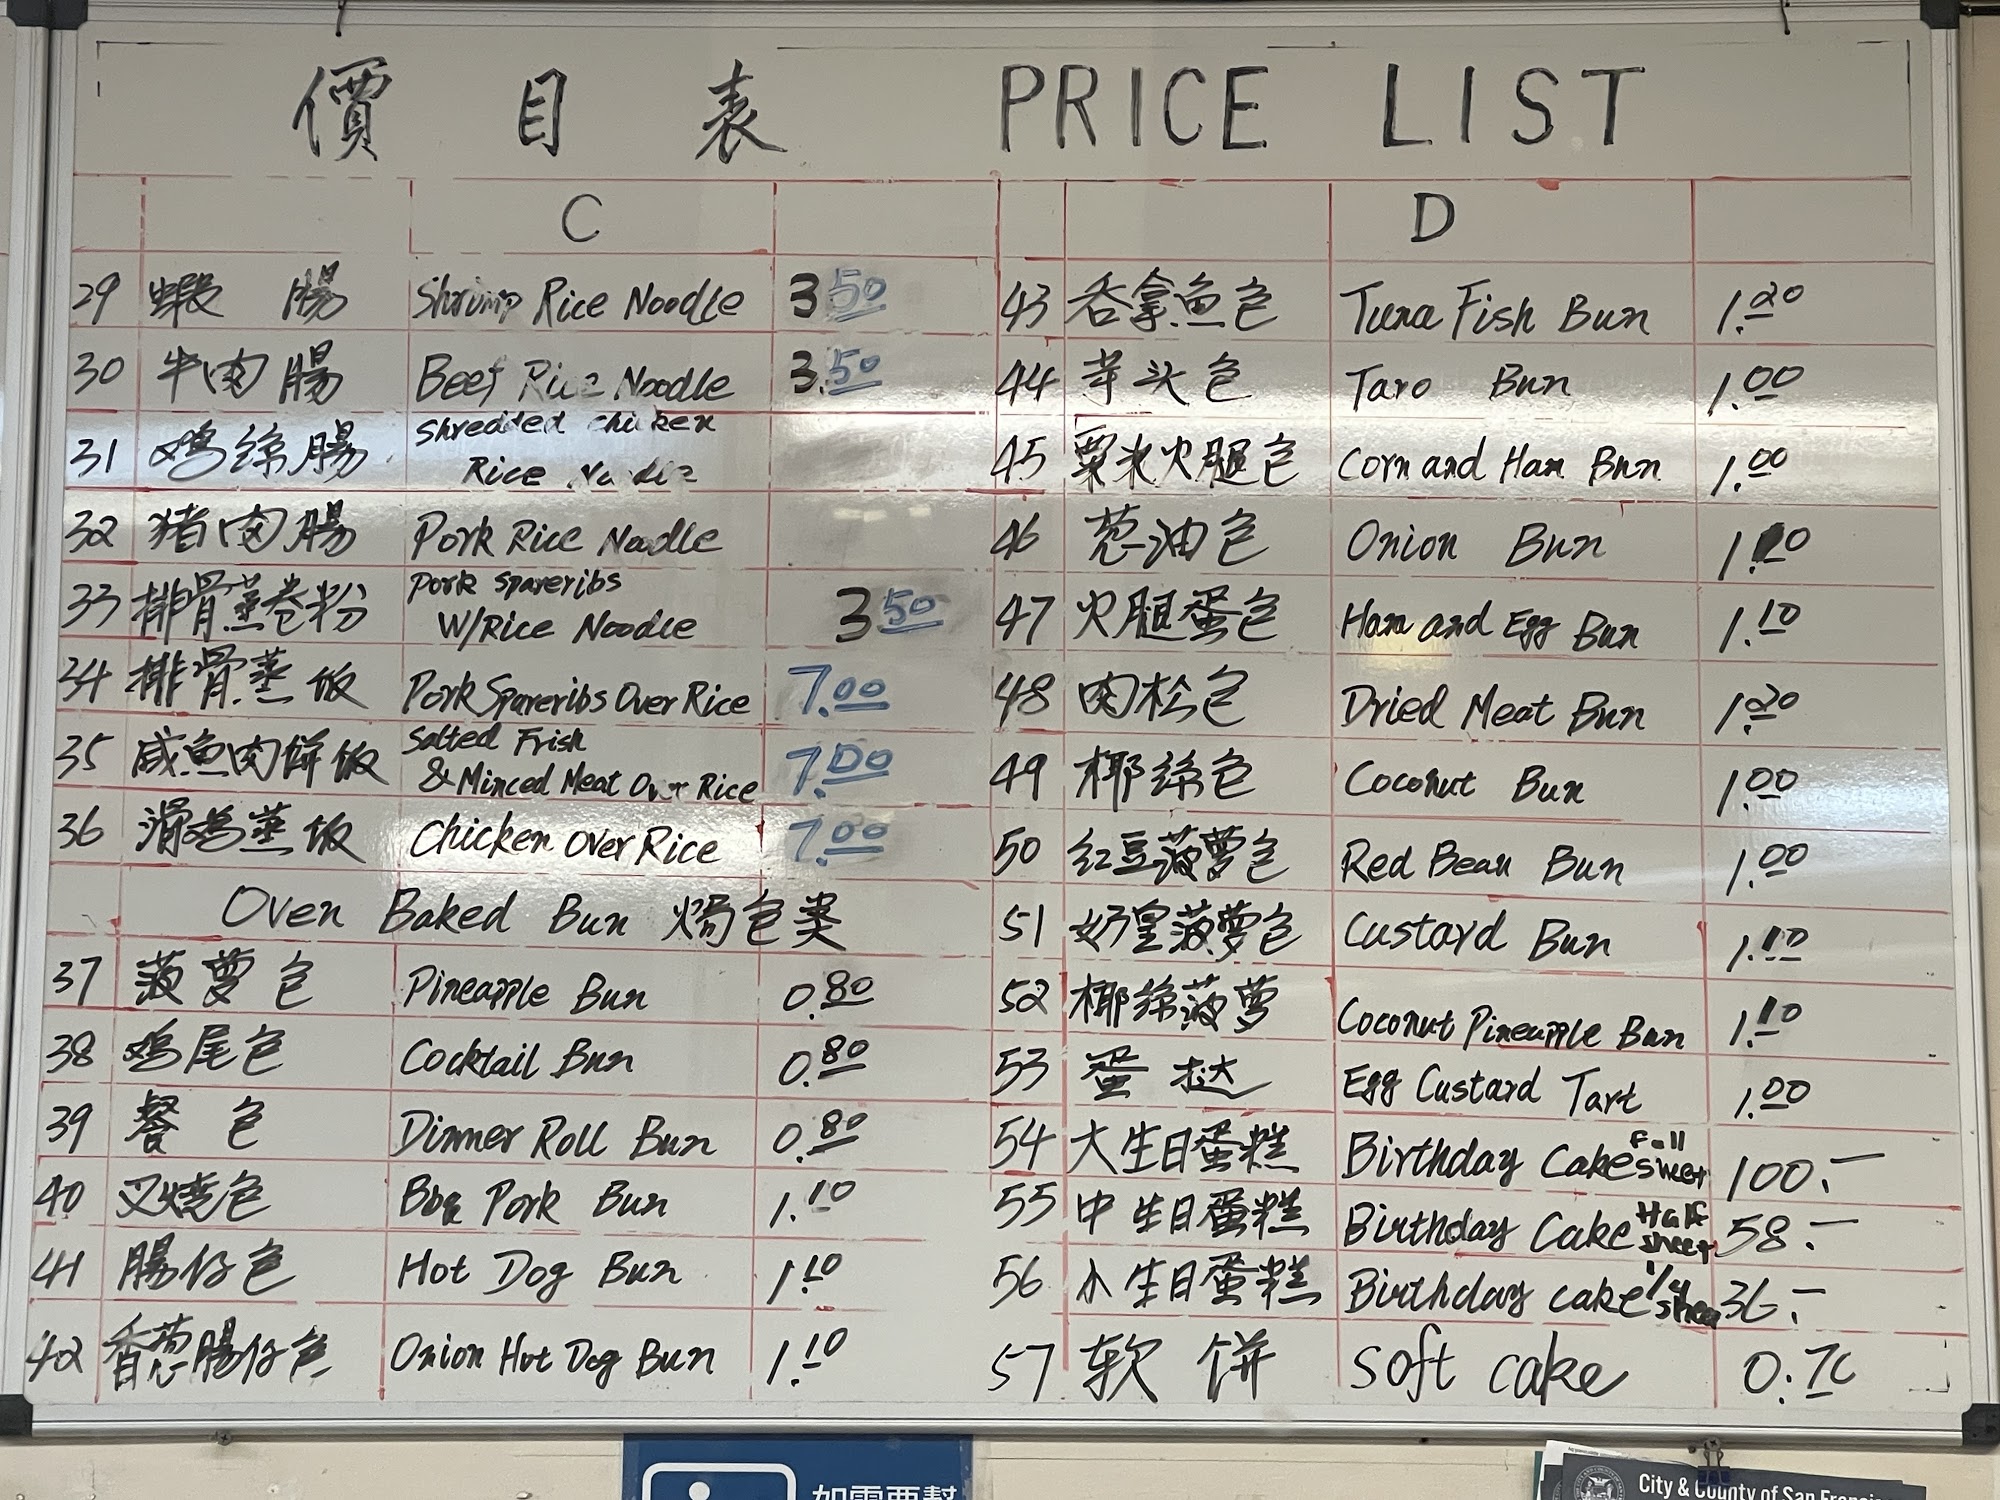 價 目 表 PRICE LIST
C
29 蝦 腸 Shrimp Rice Noodle 3.50
30 牛肉腸 Beef Rice Noodle 3.50
31 鸡絲腸 Shredded chicken
Rice Noodle
32 猪肉腸 Pork Rice Noodle
33 排骨蒸卷粉 Pork Spareribs
W/Rice Noodle 3 50
34 排骨蒸饭 Pork Spareribs Over Rice 7.00
35 咸魚肉餅饭 Salted Frish
& Minced Meat Over Rice 7.00
36 滑鸡蒸饭 Chicken Over Rice 7.00
Oven Baked Bun 焗包类
37 菠萝包 Pineapple Bun 0.80
38 鸡尾包 Cocktail Bun 0.80
39 餐 包 Dinner Roll Bun 0.80
40 叉烧包 Bbq Pork Bun 1.10
41 腸仔包 Hot Dog Bun 1.10
42 香葱腸仔包 Onion Hot Dog Bun 1.10
D
43 吞拿魚包 Tuna Fish Bun 1.20
44 芋头包 Taro Bun 1.00
45 粟米火腿包 Corn and Ham Bun 1.00
46 葱油包 Onion Bun 1.10
47 火腿蛋包 Ham and Egg Bun 1.10
48 肉松包 Dried Meat Bun 1.20
49 椰絲包 Coconut Bun 1.00
50 红豆菠萝包 Red Bean Bun 1.00
51 奶皇菠萝包 Custard Bun 1.10
52 椰絲菠萝 Coconut Pineapple Bun 1.10
53 蛋 挞 Egg Custard Tart 1.00
54 大生日蛋糕 Birthday Cake Full sheet 100.—
55 中生日蛋糕 Birthday Cake Half sheet 58.—
56 小生日蛋糕 Birthday cake 1/4 36.—
57 软 饼 Soft cake 0.70
如需要幫
City & County of San Francisco